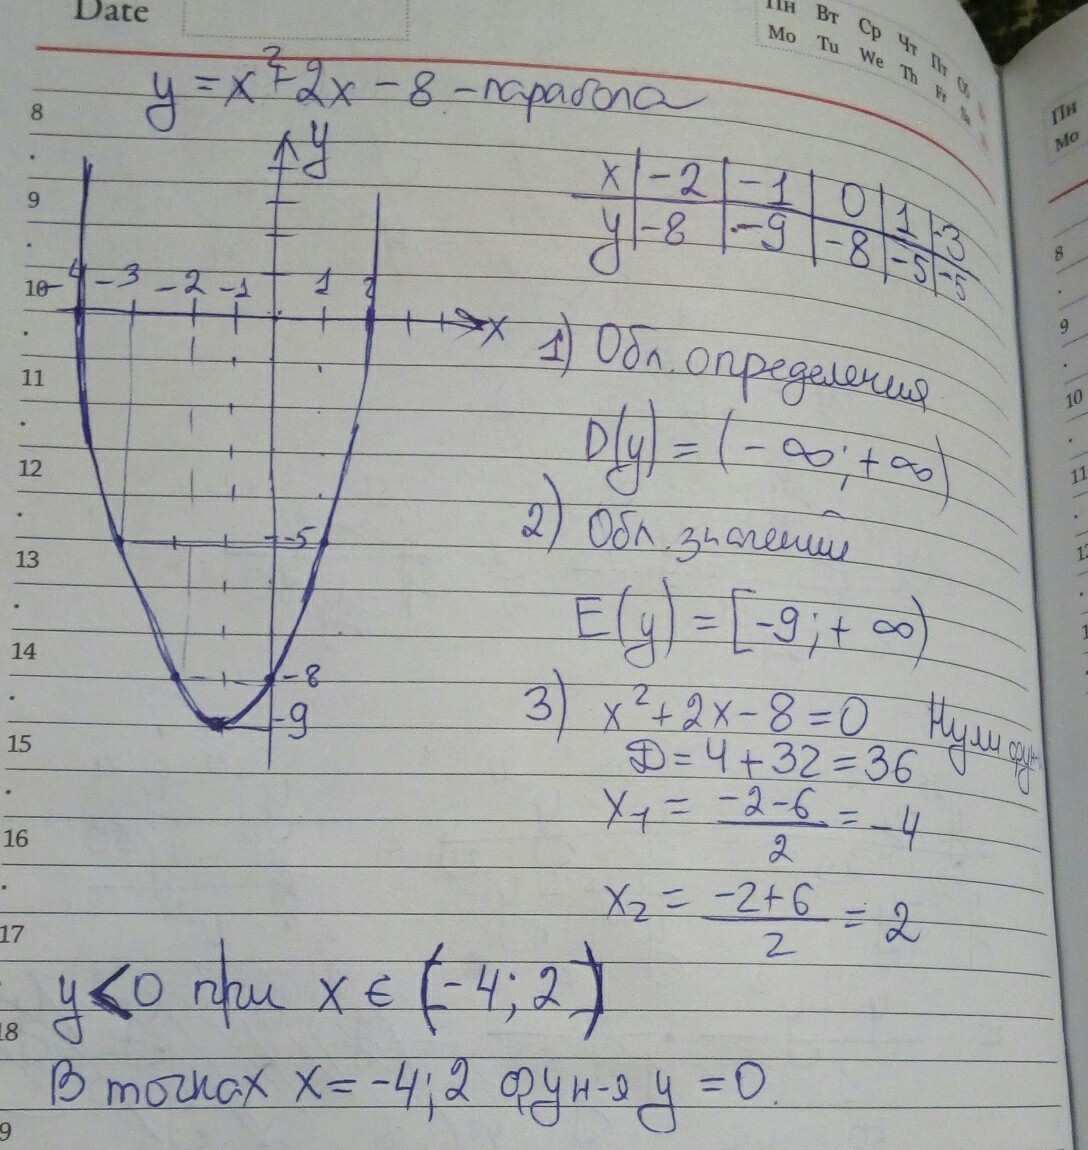 Date
Пн Вт Ср Чт Пт Сб
Mo Tu We Th Fr Sa
y = x² + 2x - 8 - парабола
y
x | -2 | -1 | 0 | 1 | -3
y | -8 | -9 | -8 | -5 | -5
-4 -3 -2 -1 1 2
x
-5
-8
-9
1) Обл. определения
D(y) = (-∞; +∞)
2) Обл. значений
E(y) = [-9; +∞)
3) x² + 2x - 8 = 0 Нули фун
D = 4 + 32 = 36
x₁ = (-2-6)/2 = -4
x₂ = (-2+6)/2 = 2
y < 0 при x ∈ (-4; 2)
В точках x = -4; 2 фун-я y = 0.
8
9
10
11
12
13
14
15
16
17
18
9
Пн
Mo
8
9
10
11